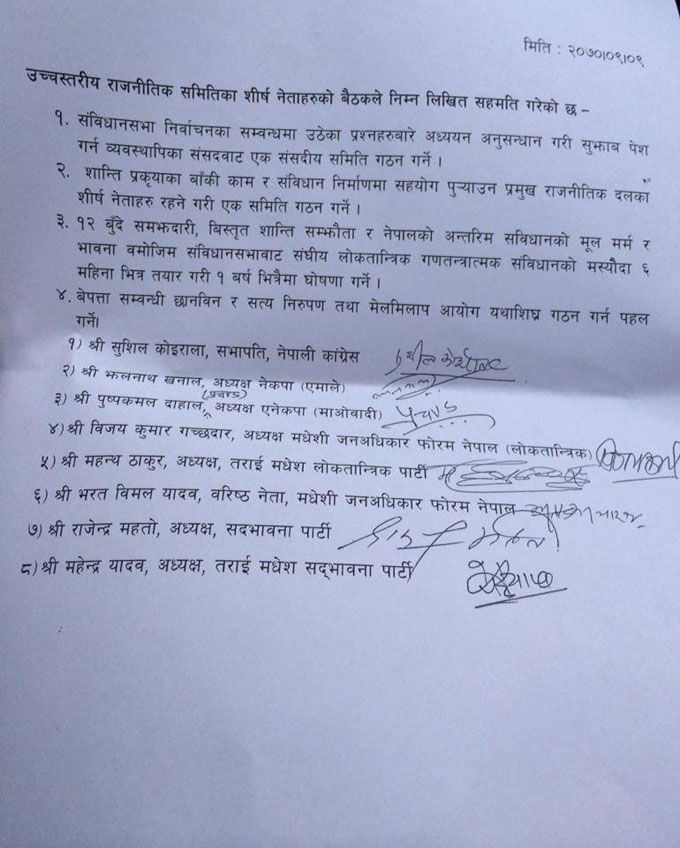 मिति : २०७०।०९।०९
उच्चस्तरीय राजनीतिक समितिका शीर्ष नेताहरुको बैठकले निम्न लिखित सहमति गरेको छ –
१. संविधानसभा निर्वाचनका सम्वन्धमा उठेका प्रश्नहरुबारे अध्ययन अनुसन्धान गरी सुझाव पेश
गर्न व्यवस्थापिका संसदवाट एक संसदीय समिति गठन गर्ने ।
२. शान्ति प्रकृयाका बाँकी काम र संविधान निर्माणमा सहयोग पुऱ्याउन प्रमुख राजनीतिक दलका
शीर्ष नेताहरु रहने गरी एक समिति गठन गर्ने ।
३. १२ बुँदे समझदारी, बिस्तृत शान्ति सम्झौता र नेपालको अन्तरिम सविधानको मूल मर्म र
भावना वमोजिम संविधानसभावाट संघीय लोकतान्त्रिक गणतन्त्रात्मक संविधानको मस्यौदा ६
महिना भित्र तयार गरी १ बर्ष भित्रैमा घोषणा गर्ने ।
४. बेपत्ता सम्वन्धी छानविन र सत्य निरुपण तथा मेलमिलाप आयोग यथाशिघ्र गठन गर्न पहल
गर्ने।
१) श्री सुशिल कोइराला, सभापति, नेपाली कांग्रेस
२) श्री झलनाथ खनाल, अध्यक्ष नेकपा (एमाले)
३) श्री पुष्पकमल दाहाल, (प्रचण्ड) अध्यक्ष एनेकपा (माओवादी) प्रचण्ड
४) श्री विजय कुमार गच्छदार, अध्यक्ष मधेशी जनअधिकार फोरम नेपाल (लोकतान्त्रिक)
५) श्री महन्थ ठाकुर, अध्यक्ष, तराई मधेश लोकतान्त्रिक पार्टी
६) श्री भरत विमल यादव, वरिष्ठ नेता, मधेशी जनअधिकार फोरम नेपाल
७) श्री राजेन्द्र महतो, अध्यक्ष, सदभावना पार्टी
८) श्री महेन्द्र यादव, अध्यक्ष, तराई मधेश सद्भावना पार्टी